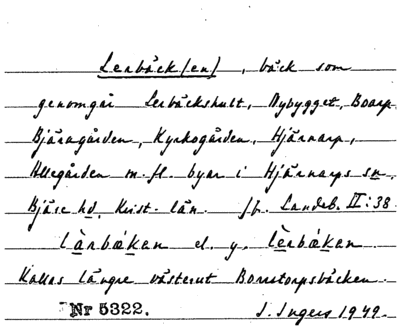 Lerbäck/en/, bäck som
genomgår Lerbäckshult, Nybygget, Boarp
Bjäragården, Kyrkogården, Hjärnarp,
Allegården m.fl. byar i Hjärnarps sn,
Bjäre hd, Krist. län. jfr. Landsb. II:38
lä̀rbǽkan el. y. lèrbǽkan
Kallas längre västerut Borrstorpsbäcken.
Nr 5322. I. Ingers 1949.